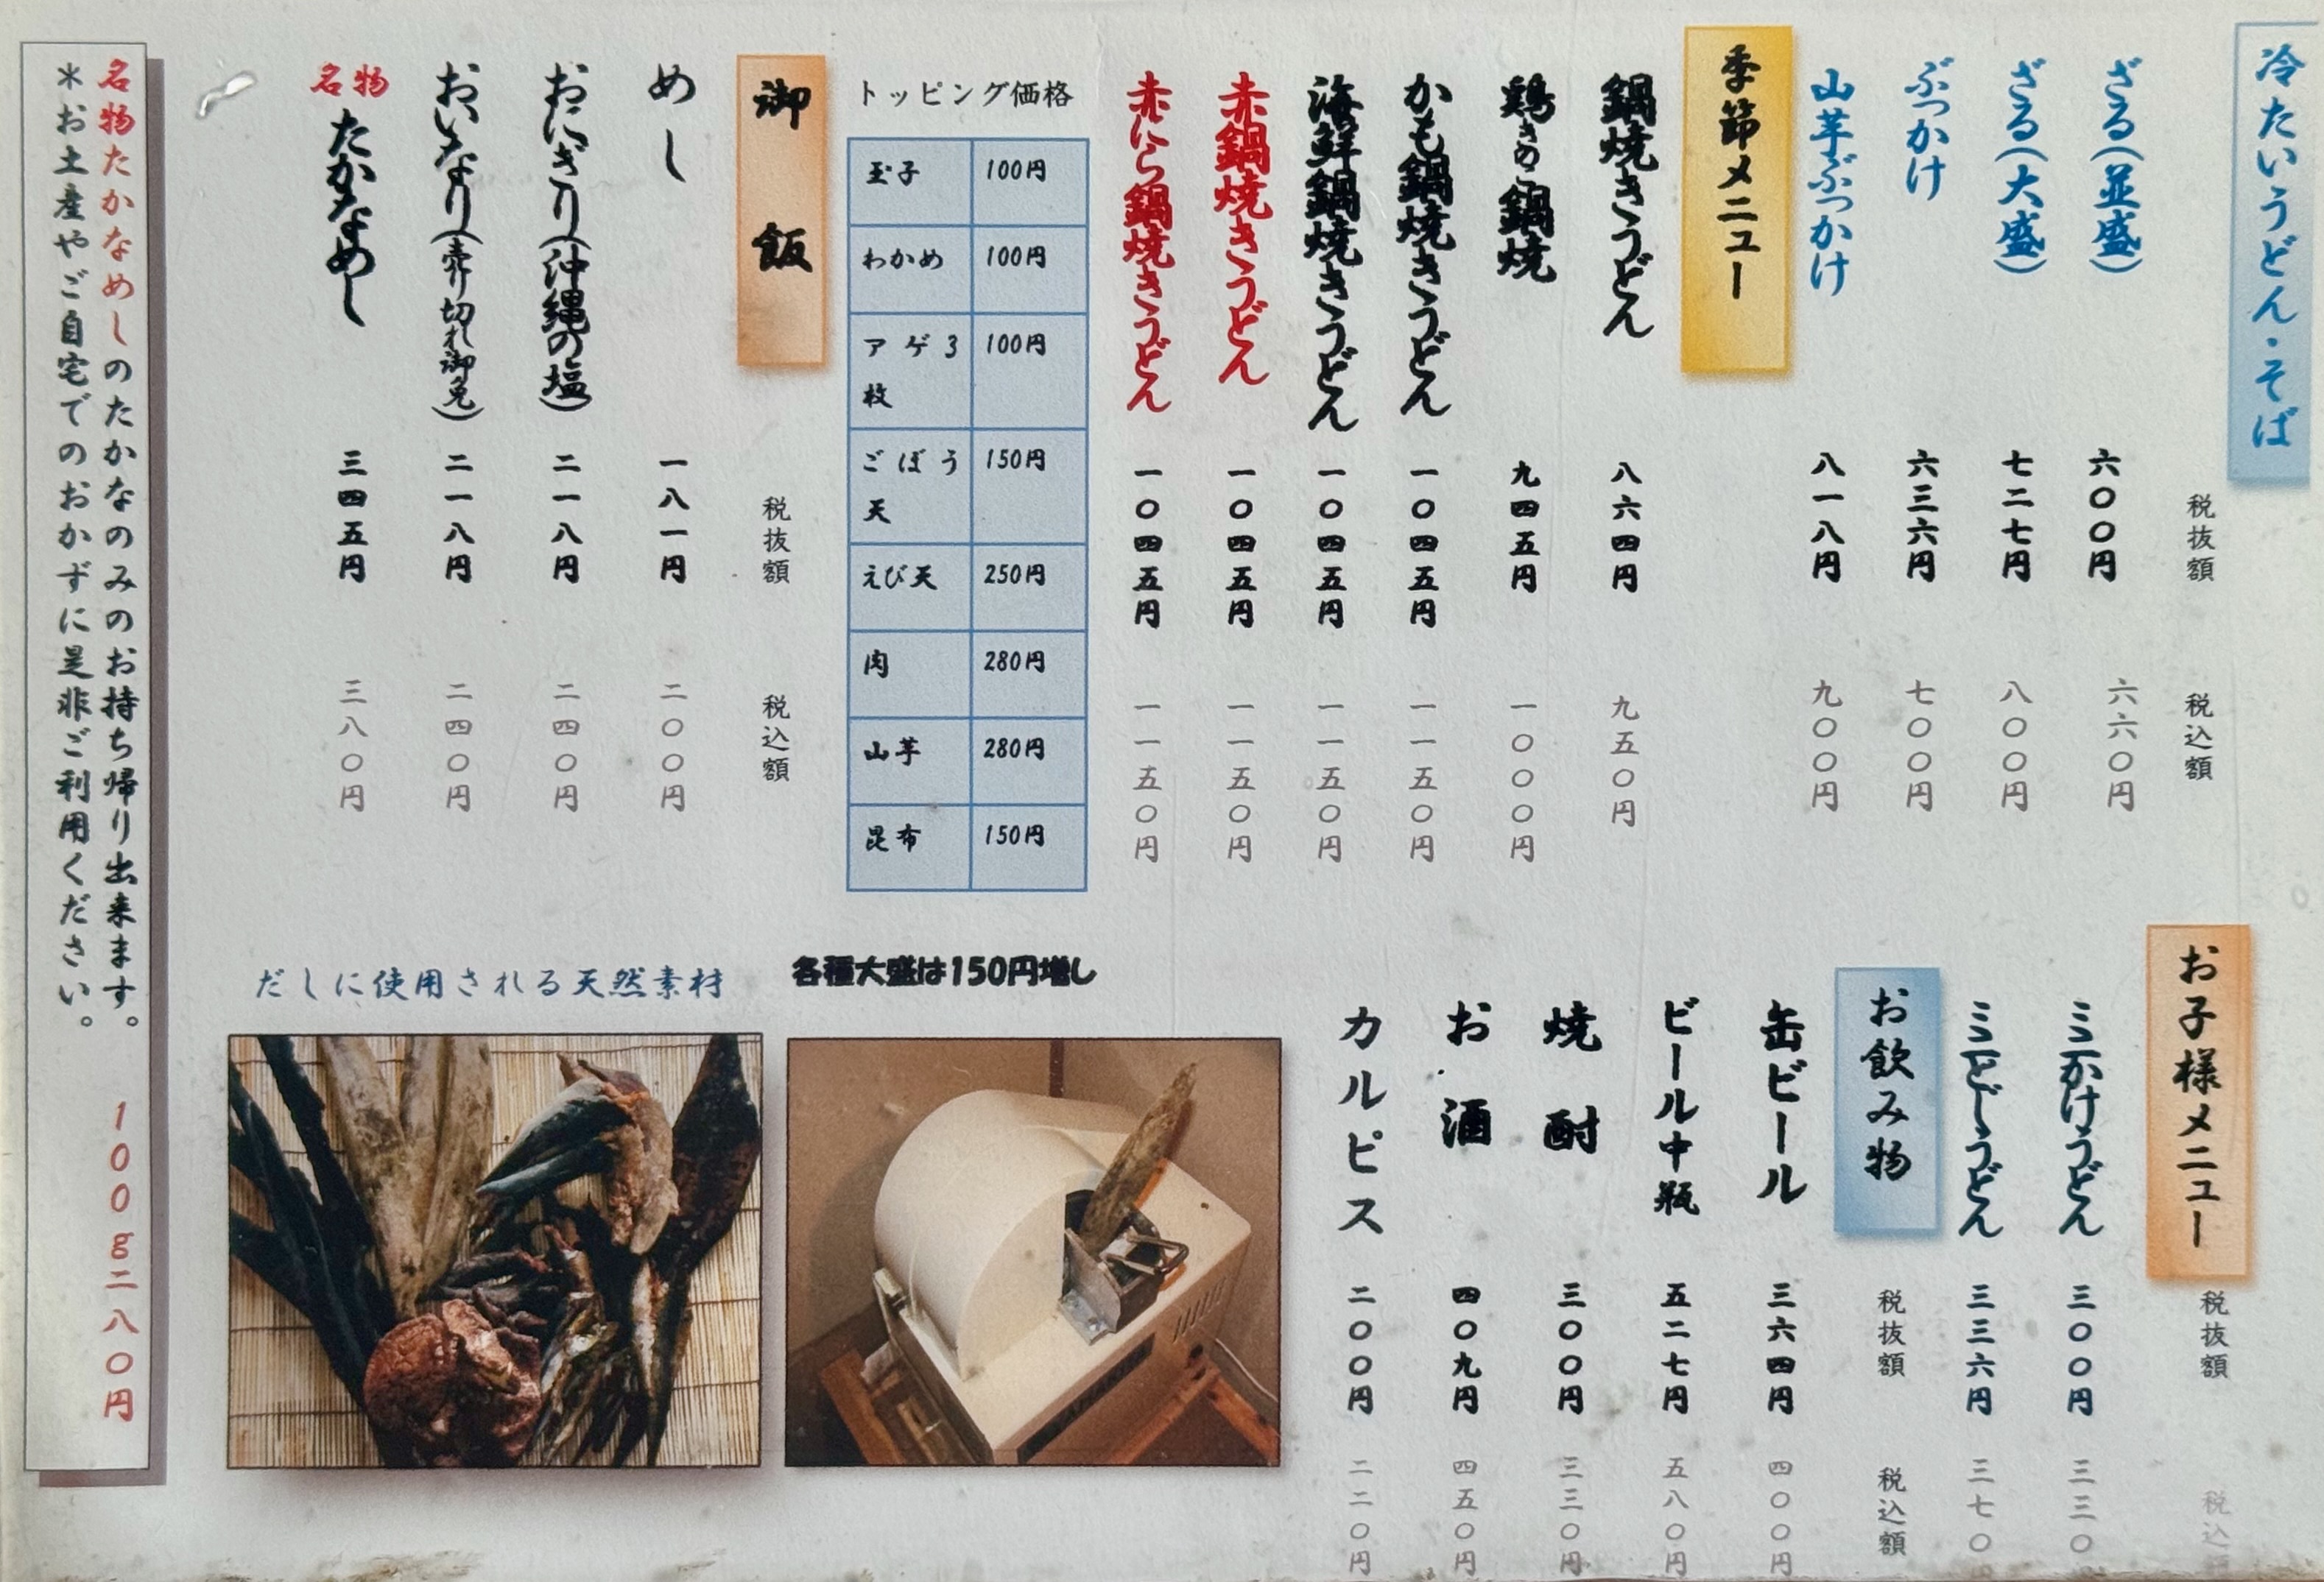 冷たいうどん・そば
税抜額
税込額
ざる(並盛)
六〇〇円
六六〇円
ざる(大盛)
七二七円
八〇〇円
ぶっかけ
六三六円
七〇〇円
山芋ぶっかけ
八一八円
九〇〇円
季節メニュー
鍋焼きうどん
八六四円
九五〇円
鶏きのこ鍋焼
九四五円
一〇〇〇円
かも鍋焼きうどん
一〇四五円
一一五〇円
海鮮鍋焼きうどん
一〇四五円
一一五〇円
赤鍋焼きうどん
一〇四五円
一一五〇円
赤にら鍋焼きうどん
一〇四五円
一一五〇円
トッピング価格
玉子 100円
わかめ 100円
アゲ3枚 100円
ごぼう天 150円
えび天 250円
肉 280円
山芋 280円
昆布 150円
各種大盛は150円増し
御飯
税抜額
税込額
めし
一八一円
二〇〇円
おにぎり(沖縄の塩)
二一八円
二四〇円
おいなり(売り切れ御免)
二一八円
二四〇円
名物たかなめし
三四五円
三八〇円
お子様メニュー
税抜額
税込
ミニかけうどん
三〇〇円
三三〇
ミニどじうどん
三三六円
三七〇
お飲み物
税抜額
税込額
缶ビール
三六四円
四〇〇円
ビール中瓶
五二七円
五八〇円
焼酎
三〇〇円
三三〇円
お酒
四〇九円
四五〇円
カルピス
二〇〇円
二二〇円
だしに使用される天然素材
名物たかなめしのたかなのみのお持ち帰り出来ます。 100g二八〇円
＊お土産やご自宅でのおかずに是非ご利用ください。